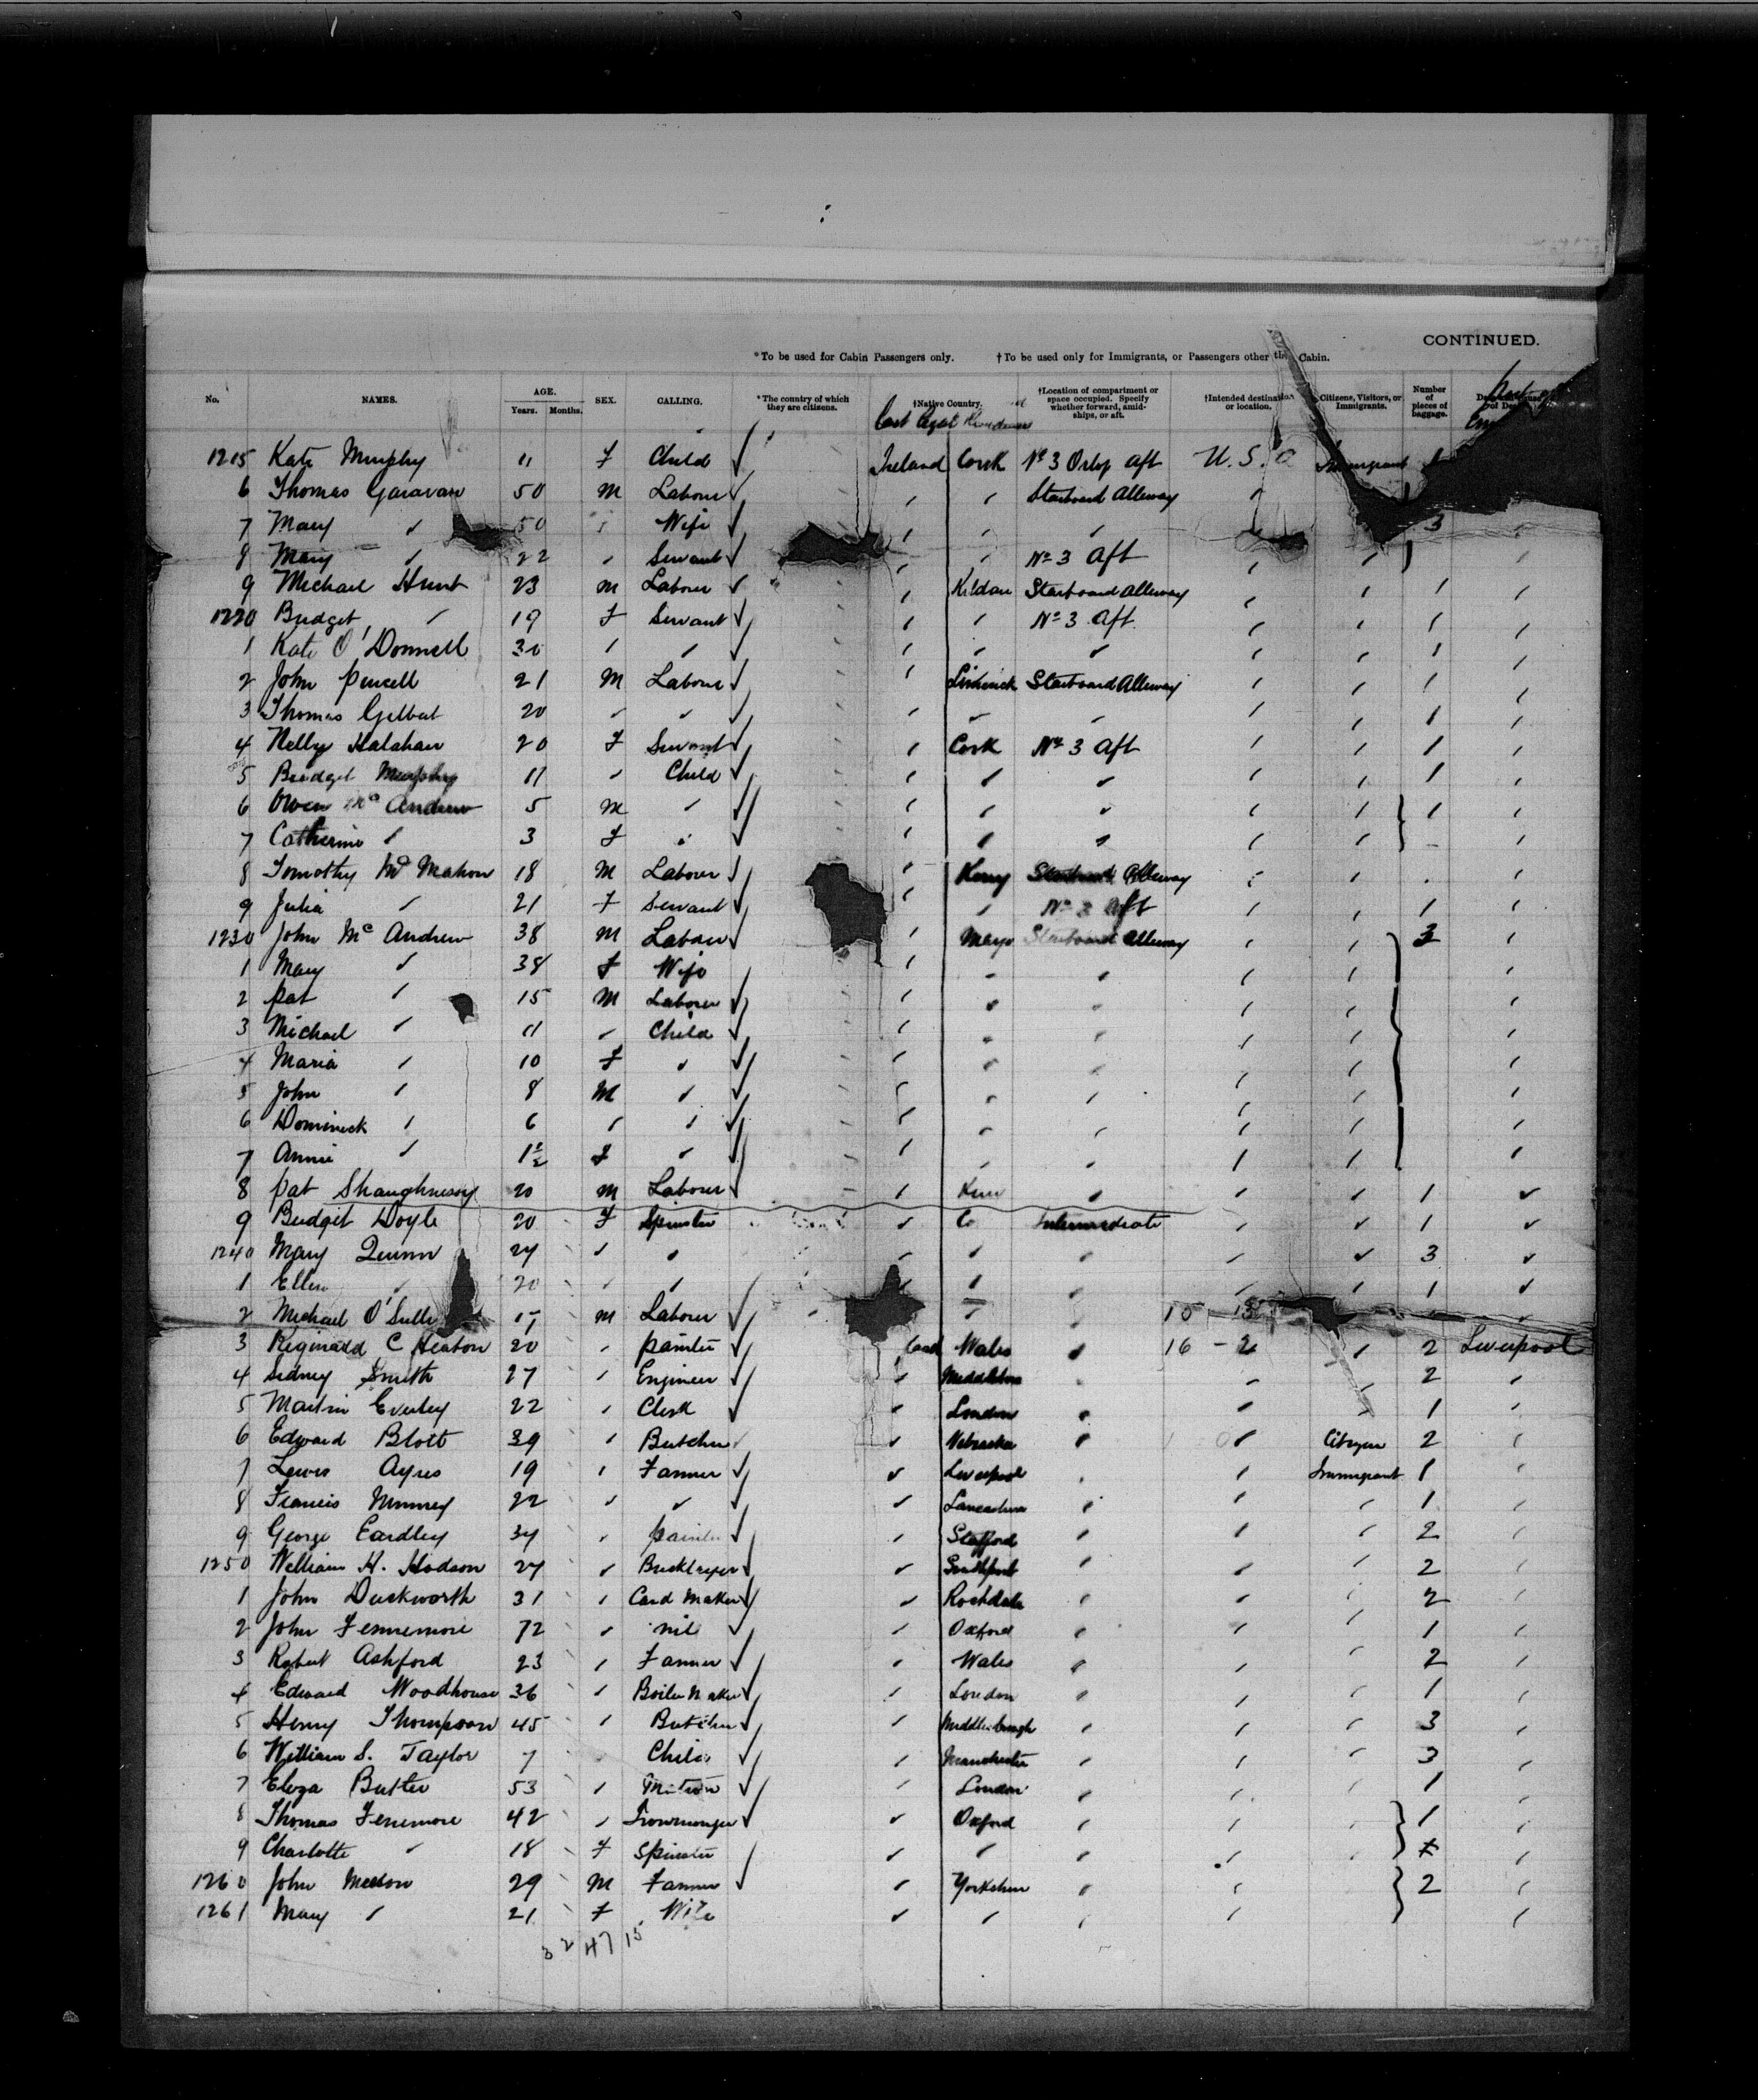 CONTINUED.
*To be used for Cabin Passengers only. †To be used only for Immigrants, or Passengers other Cabin.
No. NAMES. AGE. Years. Months. SEX. CALLING. *The country of which they are citizens. †Native Country. †Location of compartment or space occupied. Specify whether forward, amidships, or aft. †Intended destination or location. Citizens, Visitors, or Immigrants. Number of pieces of baggage.
Last legal Residence
1215 Kate Murphy 11 F Child Ireland Cork No 3 Orlop aft U.S.a Immigrant
6 Thomas Garavan 50 M Labour Starboard Alleway
7 Mary 50 Wife 3
8 Mary 22 Servant No 3 Aft
9 Michael Hunt 23 M Labour Kildare Starboard Alleway 1
1220 Bridget 19 F Servant No 3 aft 1
1 Kate O'Donnell 30 1
2 John Purcell 21 M Labour Limerick Starboard Alleway 1
3 Thomas Gilbert 20 1
4 Nelly Halahan 20 F Servant Cork No 3 Aft 1
5 Bridget Murphy 11 Child 1
6 Owen Mc Andrew 5 M 1
7 Catherine 3 F
8 Tomothy Mc Mahon 18 M Labour Kerry Starboard Alleway
9 Julia 21 F Servant No 3 Aft 1
1230 John Mc Andrew 38 M Labour Mayo Starboard Alleway 3
1 Mary 38 F Wife
2 Pat 15 M Labourer
3 Michael 11 Child
4 Maria 10 F
5 John 8 M
6 Dominick 6
7 Annie 1½ F
8 Pat Shaughnessy 20 M Labour 1
9 Bridget Doyle 20 F Spinster Intermediate 1
1240 Mary Quinn 24 3
1 Ellen 20 1
2 Michael O'Sulli M Labour
3 Reginald C Heaton 20 painter Wales 16 - 2 2 Liverpool
4 Sidney Smith 27 Engineer 2
5 Martin Everley 22 Clerk London 1
6 Edward Blott 39 Butcher Nebraska Citizen 2
7 Lewis Ayres 19 Farmer Liverpool Immigrant 1
8 Francis 22 Lancashire 1
9 George Eardley 34 painter Stafford 2
1250 William H. Hodson 24 Bricklayer Southport 2
1 John Duckworth 31 Card Maker Rochdale 2
2 John Fennemore 72 nil Oxford 1
3 Robert Ashford 23 Farmer Wales 2
4 Edward Woodhouse 36 Boiler Maker London 1
5 Henry Thompson 45 Butcher Middlesbrough 3
6 William S. Taylor 7 Child Manchester 3
7 Eliza Butler 53 Matron London 1
8 Thomas Fenemore 42 Ironmonger Oxford 1
9 Charlotte 18 F Spinster
1260 John 29 M Farmer Yorkshire 2
1261 Mary 21 F Wife
32 47 15